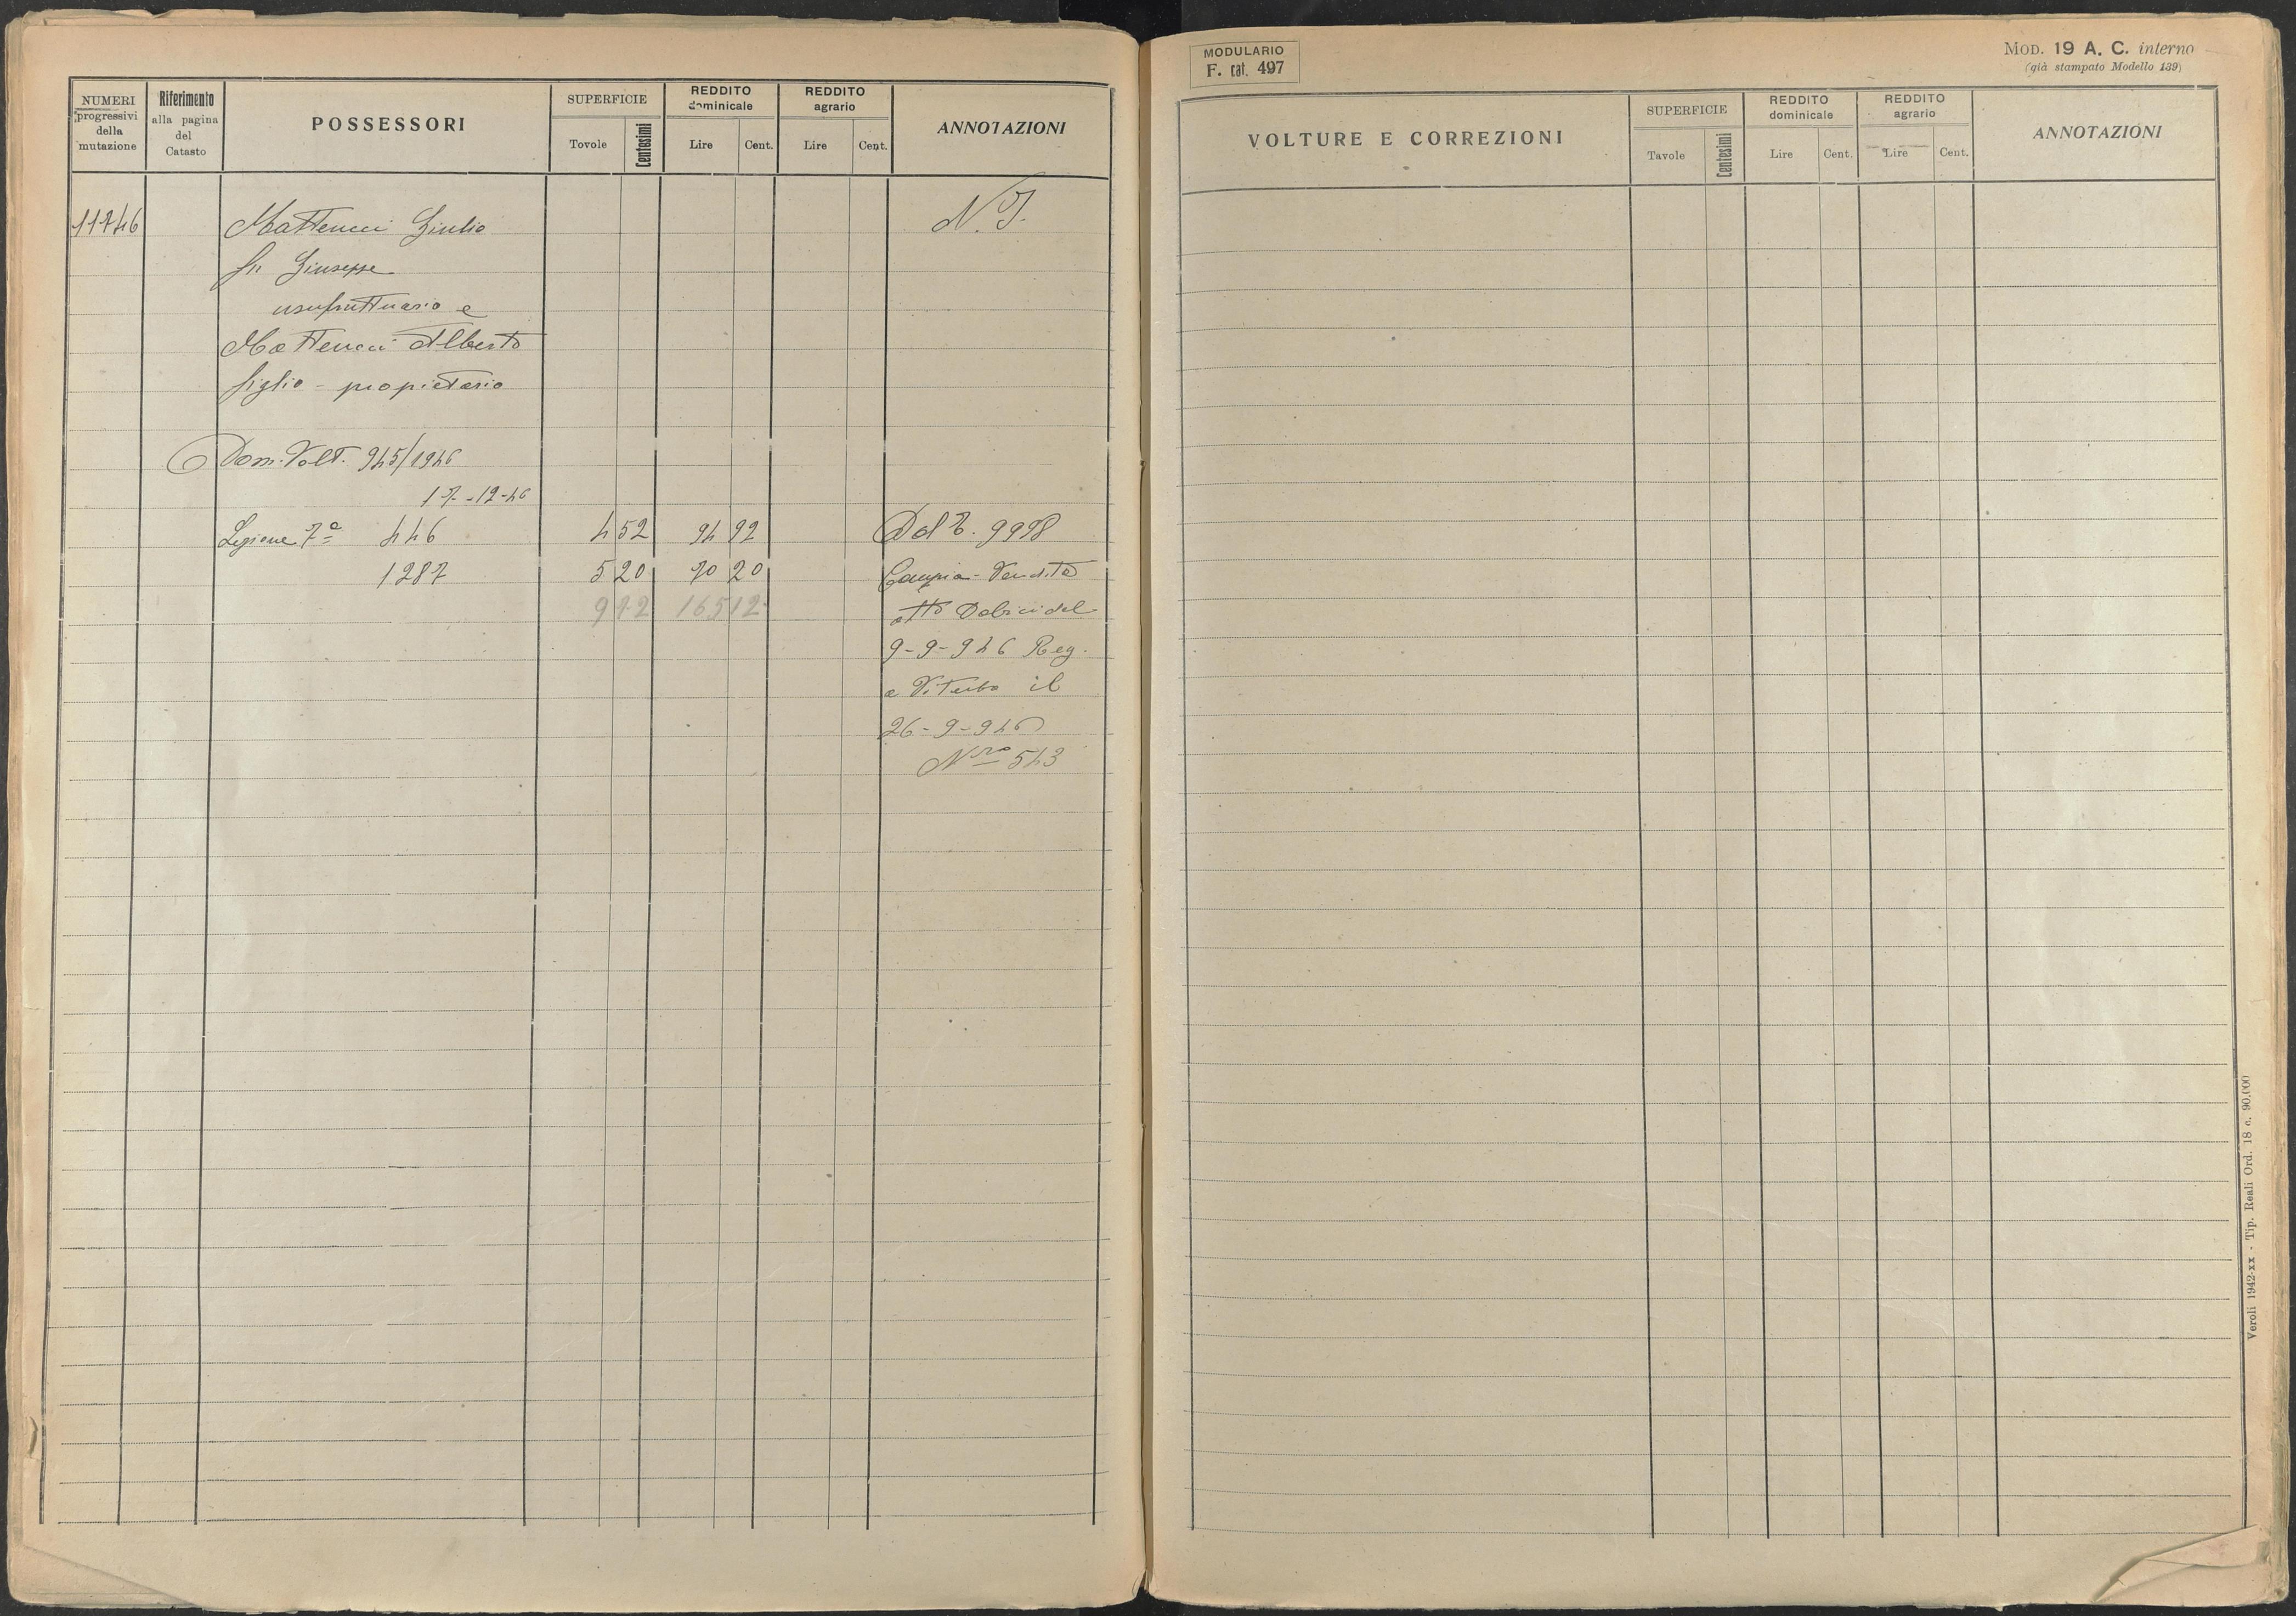 NUMERI progressivi della mutazione
Riferimento alla pagina del Catasto
POSSESSORI
SUPERFICIE
Tavole Centesimi
REDDITO dominicale
Lire Cent.
REDDITO agrario
Lire Cent.
ANNOTAZIONI
11746 Matteucci Giulio N. I.
fu Giuseppe
usufruttuario e
Matteucci Alberto
figlio - propietario
Dom. Volt. 945/1946
17-12-46
Sezione 7ª 446 4 52 94 92 Dal N. 9998
1287 5 20 70 20 Compra-Vendita
9 72 165 12 atto del
9-9-946 Reg.
a Viterbo il
26-9-946
Nro 543
MODULARIO
F. cat. 497
MOD. 19 A. C. interno
(già stampato Modello 139)
VOLTURE E CORREZIONI
SUPERFICIE
Tavole Centesimi
REDDITO dominicale
Lire Cent.
REDDITO agrario
Lire Cent.
ANNOTAZIONI
Veroli 1942-XX - Tip. Reali Ord. 18 c. 90.000